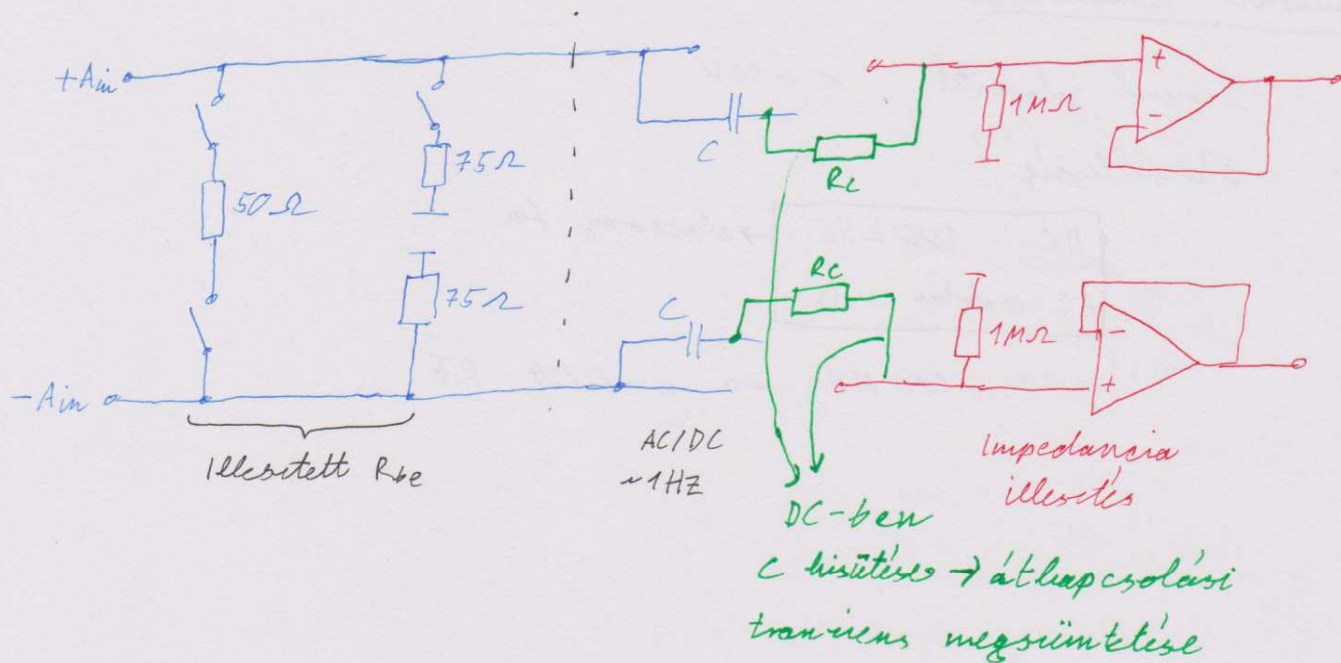 +Ain
50Ω
75Ω
75Ω
-Ain
Illesztett Rbe
C
Rc
C
Rc
AC/DC
~1HZ
1MΩ
+
-
1MΩ
-
+
Impedancia
illesztés
DC-ben
C kisütése → átkapcsolási
tranziens megszüntetése